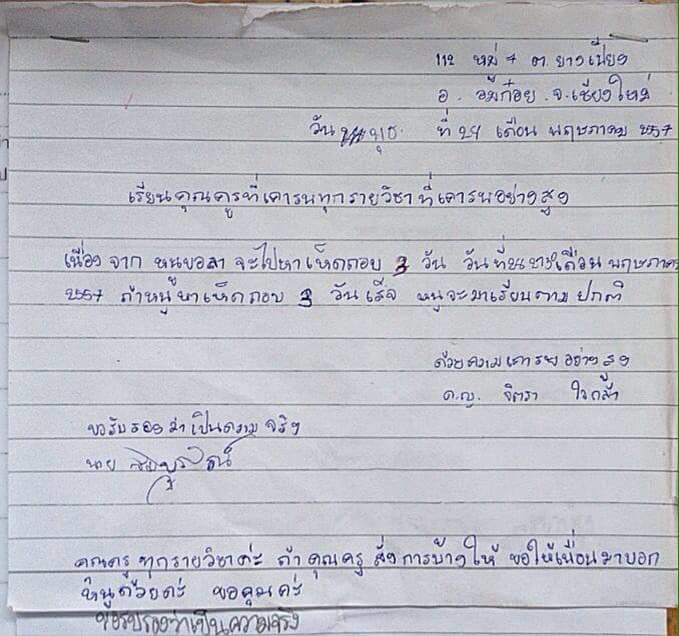 112 หมู่ 7 ต.ยางเปียง
อ.อมก๋อย จ.เชียงใหม่
วัน พุธ ที่ 21 เดือน พฤษภาคม 2557
เรียนคุณครูที่เคารพทุกรายวิชาที่เคารพอย่างสูง
เนื่อง จาก หนูขอลา จะไปหาเห็ดถอบ 3 วัน วันที่ เดือน พฤษภาคม
2557 ถ้าหนูหาเห็ดถอบ 3 วันเส็จ หนูจะมาเรียนตาม ปกติ
ด้วยความเคารพอย่างสูง
ด.ญ. จิตรา ใจกล้า
ขอรับรองว่าเป็นความจริง
นาย
คุณครูทุกรายวิชาค่ะ ถ้าคุณครู สั่งการบ้างให้ ขอให้เพื่อนมาบอก
หนูด้วยค่ะ ขอคุมค่ะ
ขอรับรองว่าเป็นความจริง